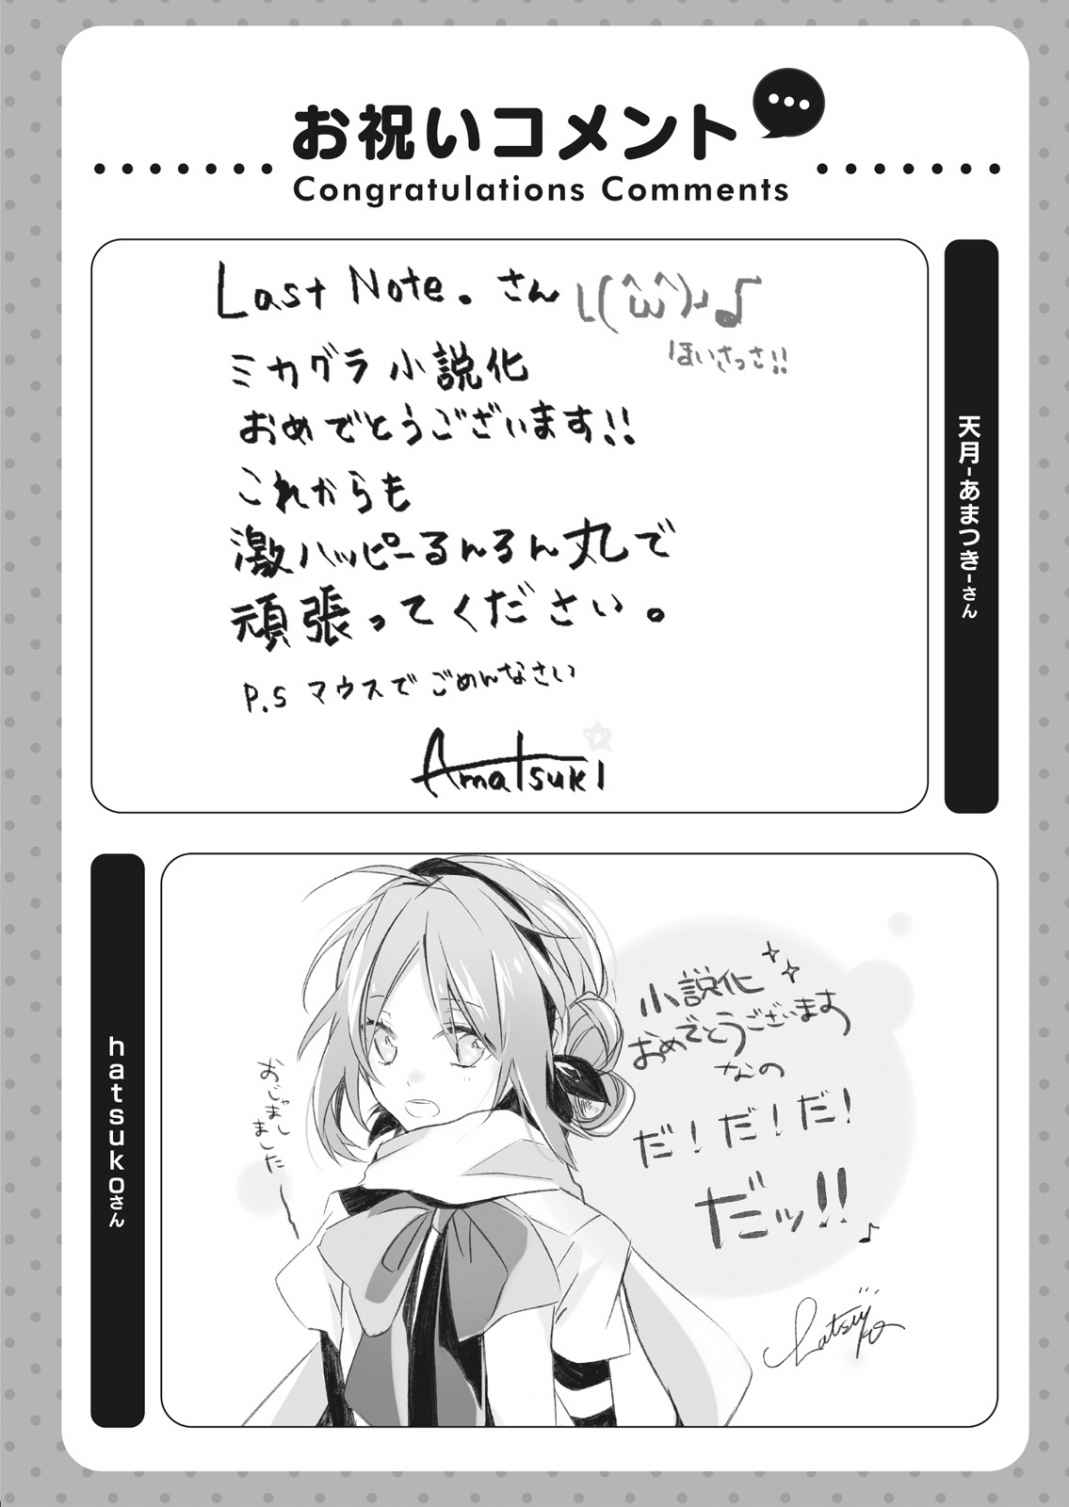 お祝いコメント
Congratulations Comments
Last Note. さん
└(^ω^)┘♪
ほいさっさ!!
ミカグラ小説化
おめでとうございます!!
これからも
激ハッピーるんるん丸で
頑張ってください。
P.S マウスでごめんなさい
Amatsuki
天月-あまつき-さん
hatsukoさん
おじゃまし
ました
小説化
おめでとうございます
なの
だ!だ!だ!
だッ!!♪
hatsuko